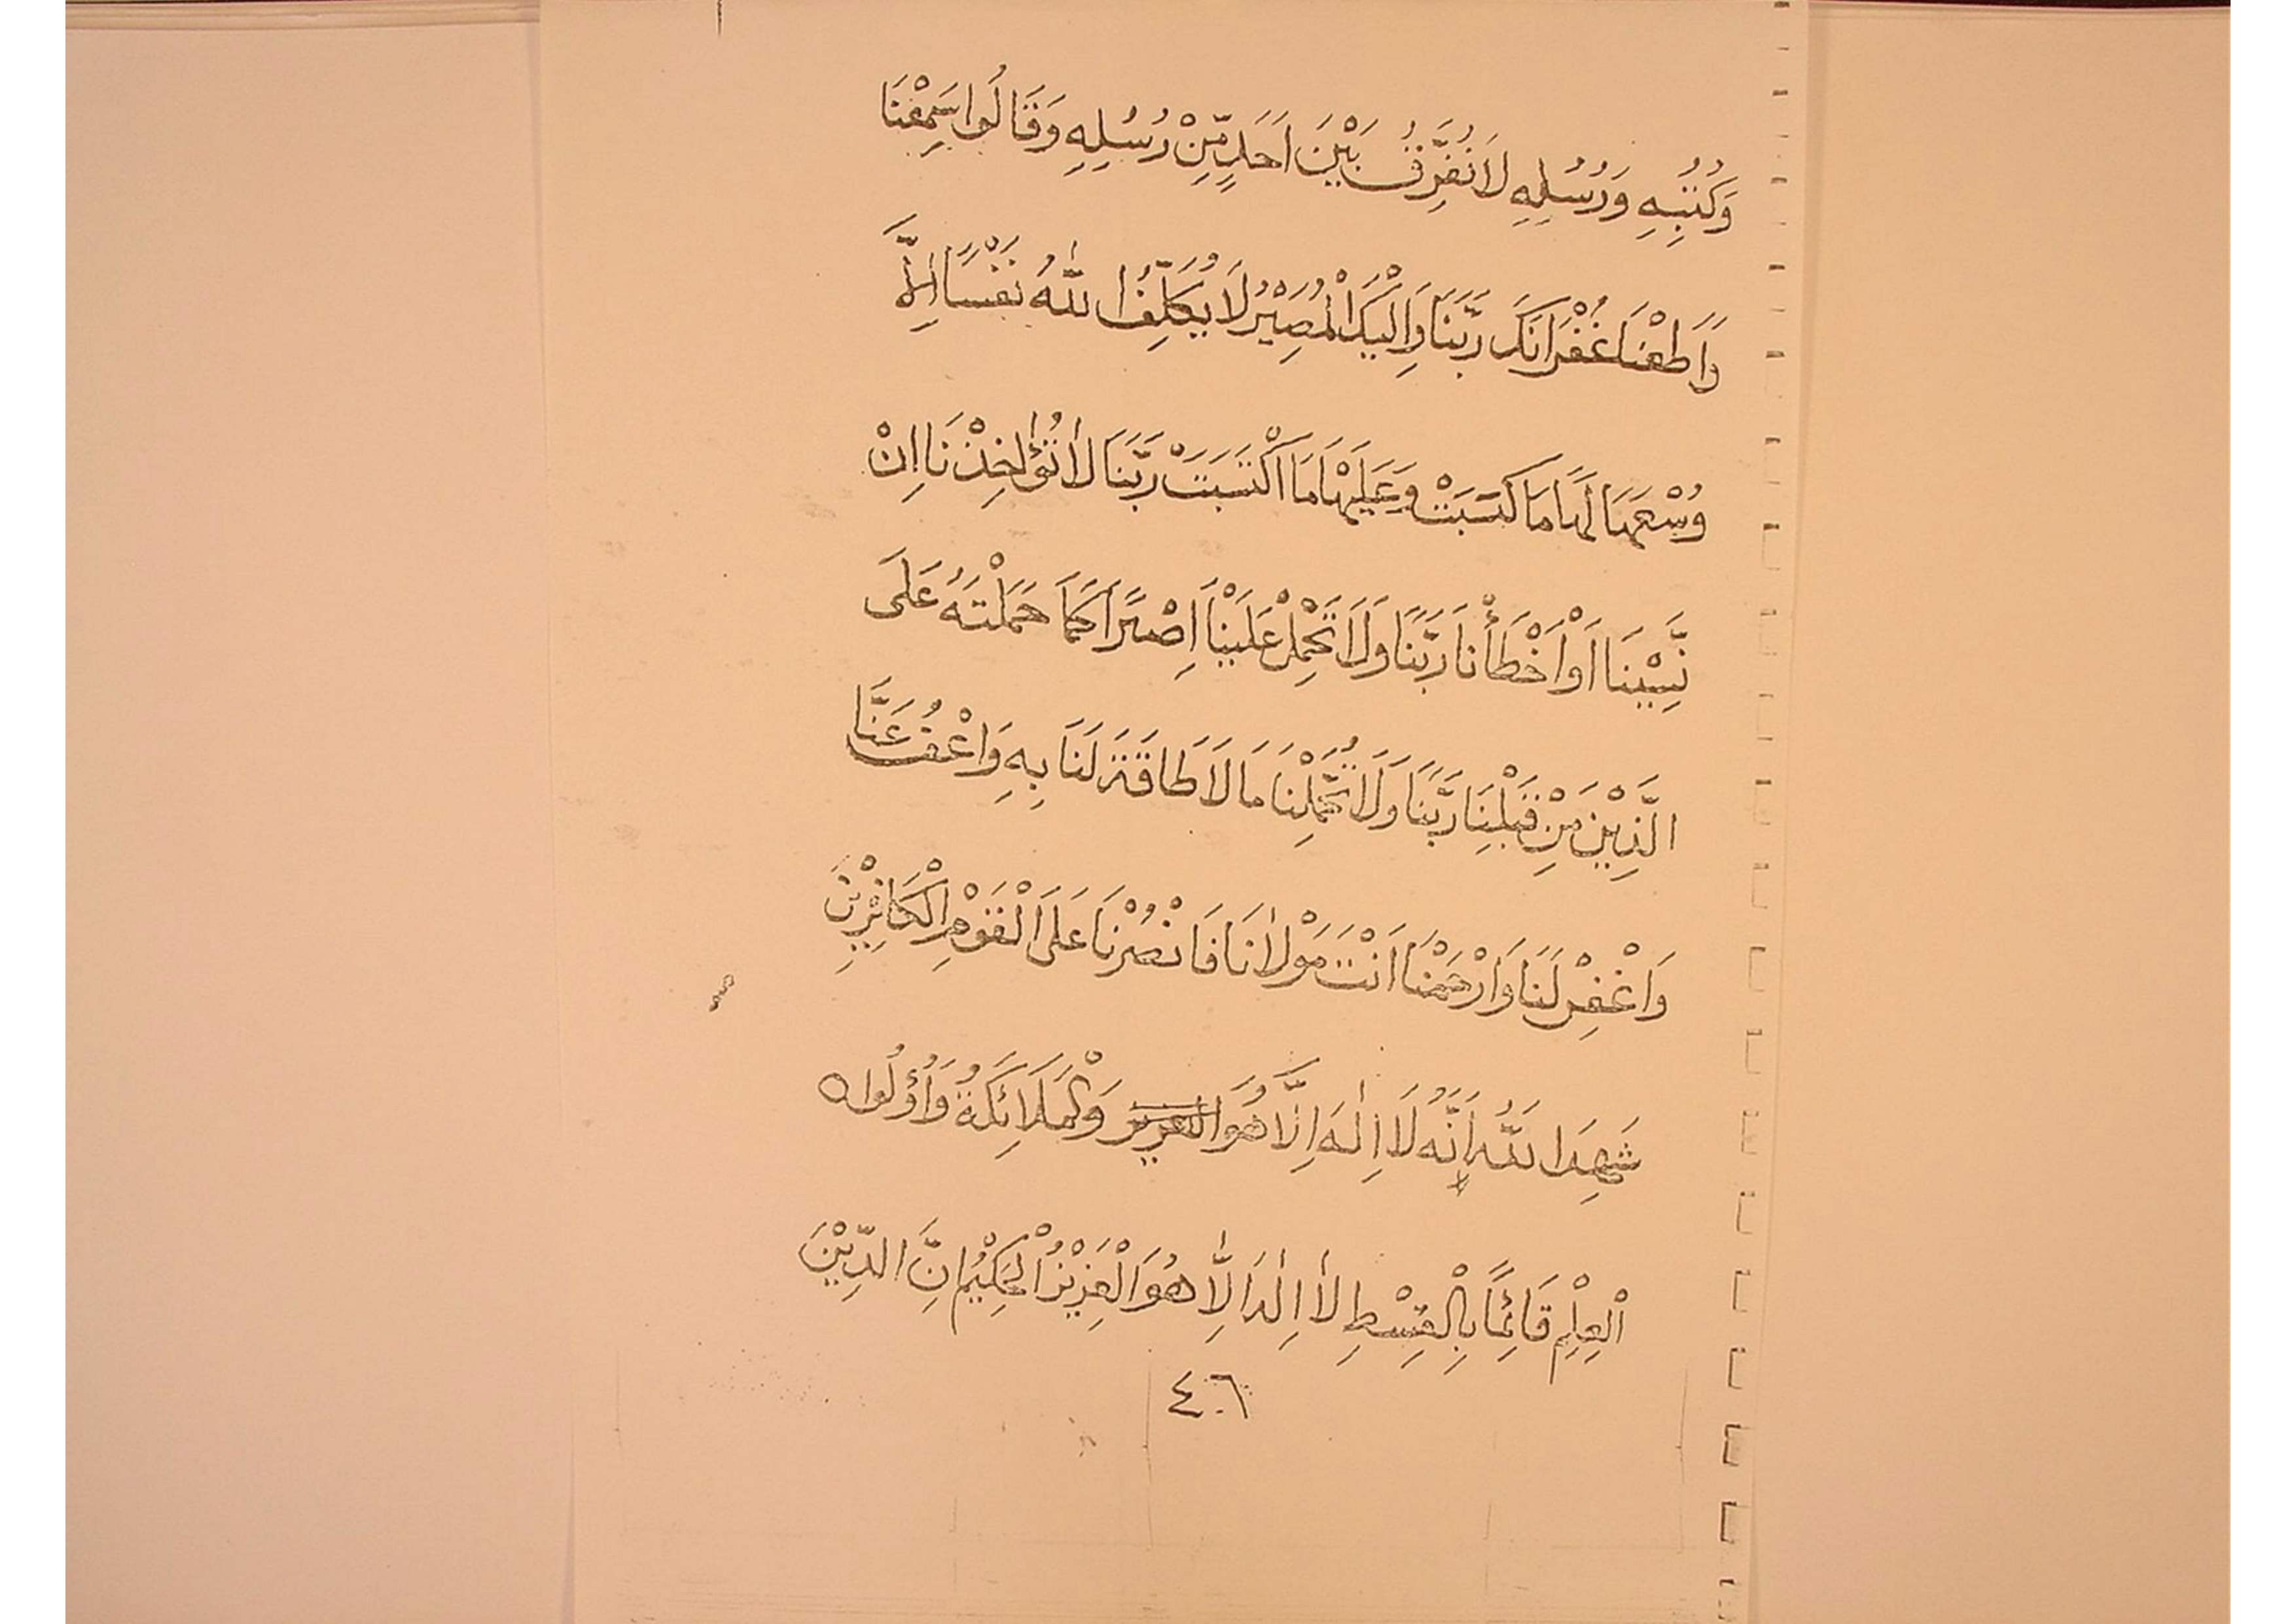 وَكُتُبِهِ وَرُسُلِهِ لَا نُفَرِّقُ بَيْنَ اَحَدٍ مِّنْ رُسُلِهِ وَقَالُوا سَمِعْنَا
وَاَطَعْنَا غُفْرَانَكَ رَبَّنَا وَاِلَيْكَ الْمَصِيْرُ لَا يُكَلِّفُ اللّٰهُ نَفْسًا اِلَّا
وُسْعَهَا لَهَا مَا كَسَبَتْ وَعَلَيْهَا مَا اكْتَسَبَتْ رَبَّنَا لَا تُؤَاخِذْنَا اِنْ
نَّسِيْنَا اَوْ اَخْطَأْنَا رَبَّنَا وَلَا تَحْمِلْ عَلَيْنَا اِصْرًا كَمَا حَمَلْتَهُ عَلَى
الَّذِيْنَ مِنْ قَبْلِنَا رَبَّنَا وَلَا تُحَمِّلْنَا مَا لَا طَاقَةَ لَنَا بِهِ وَاعْفُ عَنَّا
وَاغْفِرْ لَنَا وَارْحَمْنَا اَنْتَ مَوْلٰانَا فَانْصُرْنَا عَلَى الْقَوْمِ الْكَافِرِيْنَ
شَهِدَ اللّٰهُ اَنَّهُ لَا اِلٰهَ اِلَّا هُوَ العزيز وَالْمَلَائِكَةُ وَاُولُوا
الْعِلْمِ قَائِمًا بِالْقِسْطِ لَا اِلٰهَ اِلَّا هُوَ الْعَزِيْزُ الْحَكِيْمُ اِنَّ الدِّيْنَ
٤٠٦